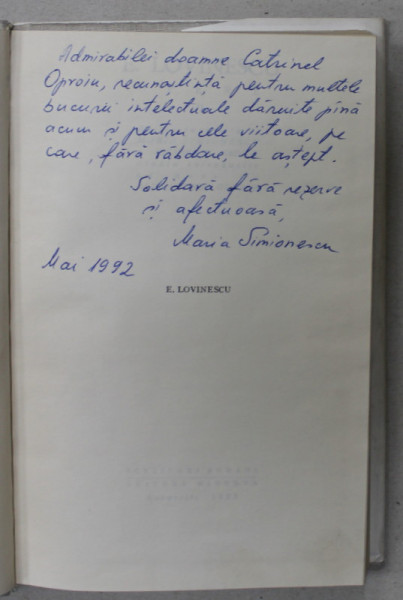 Admirabilei doamne Catrinel
Oproiu, recunoștință pentru multele
bucurii intelectuale dăruite pînă
acum și pentru cele viitoare, pe
care, fără răbdare, le aștept.
Solidară fără rezerve
și afectuoasă,
Maria Simionescu
Mai 1992
E. LOVINESCU